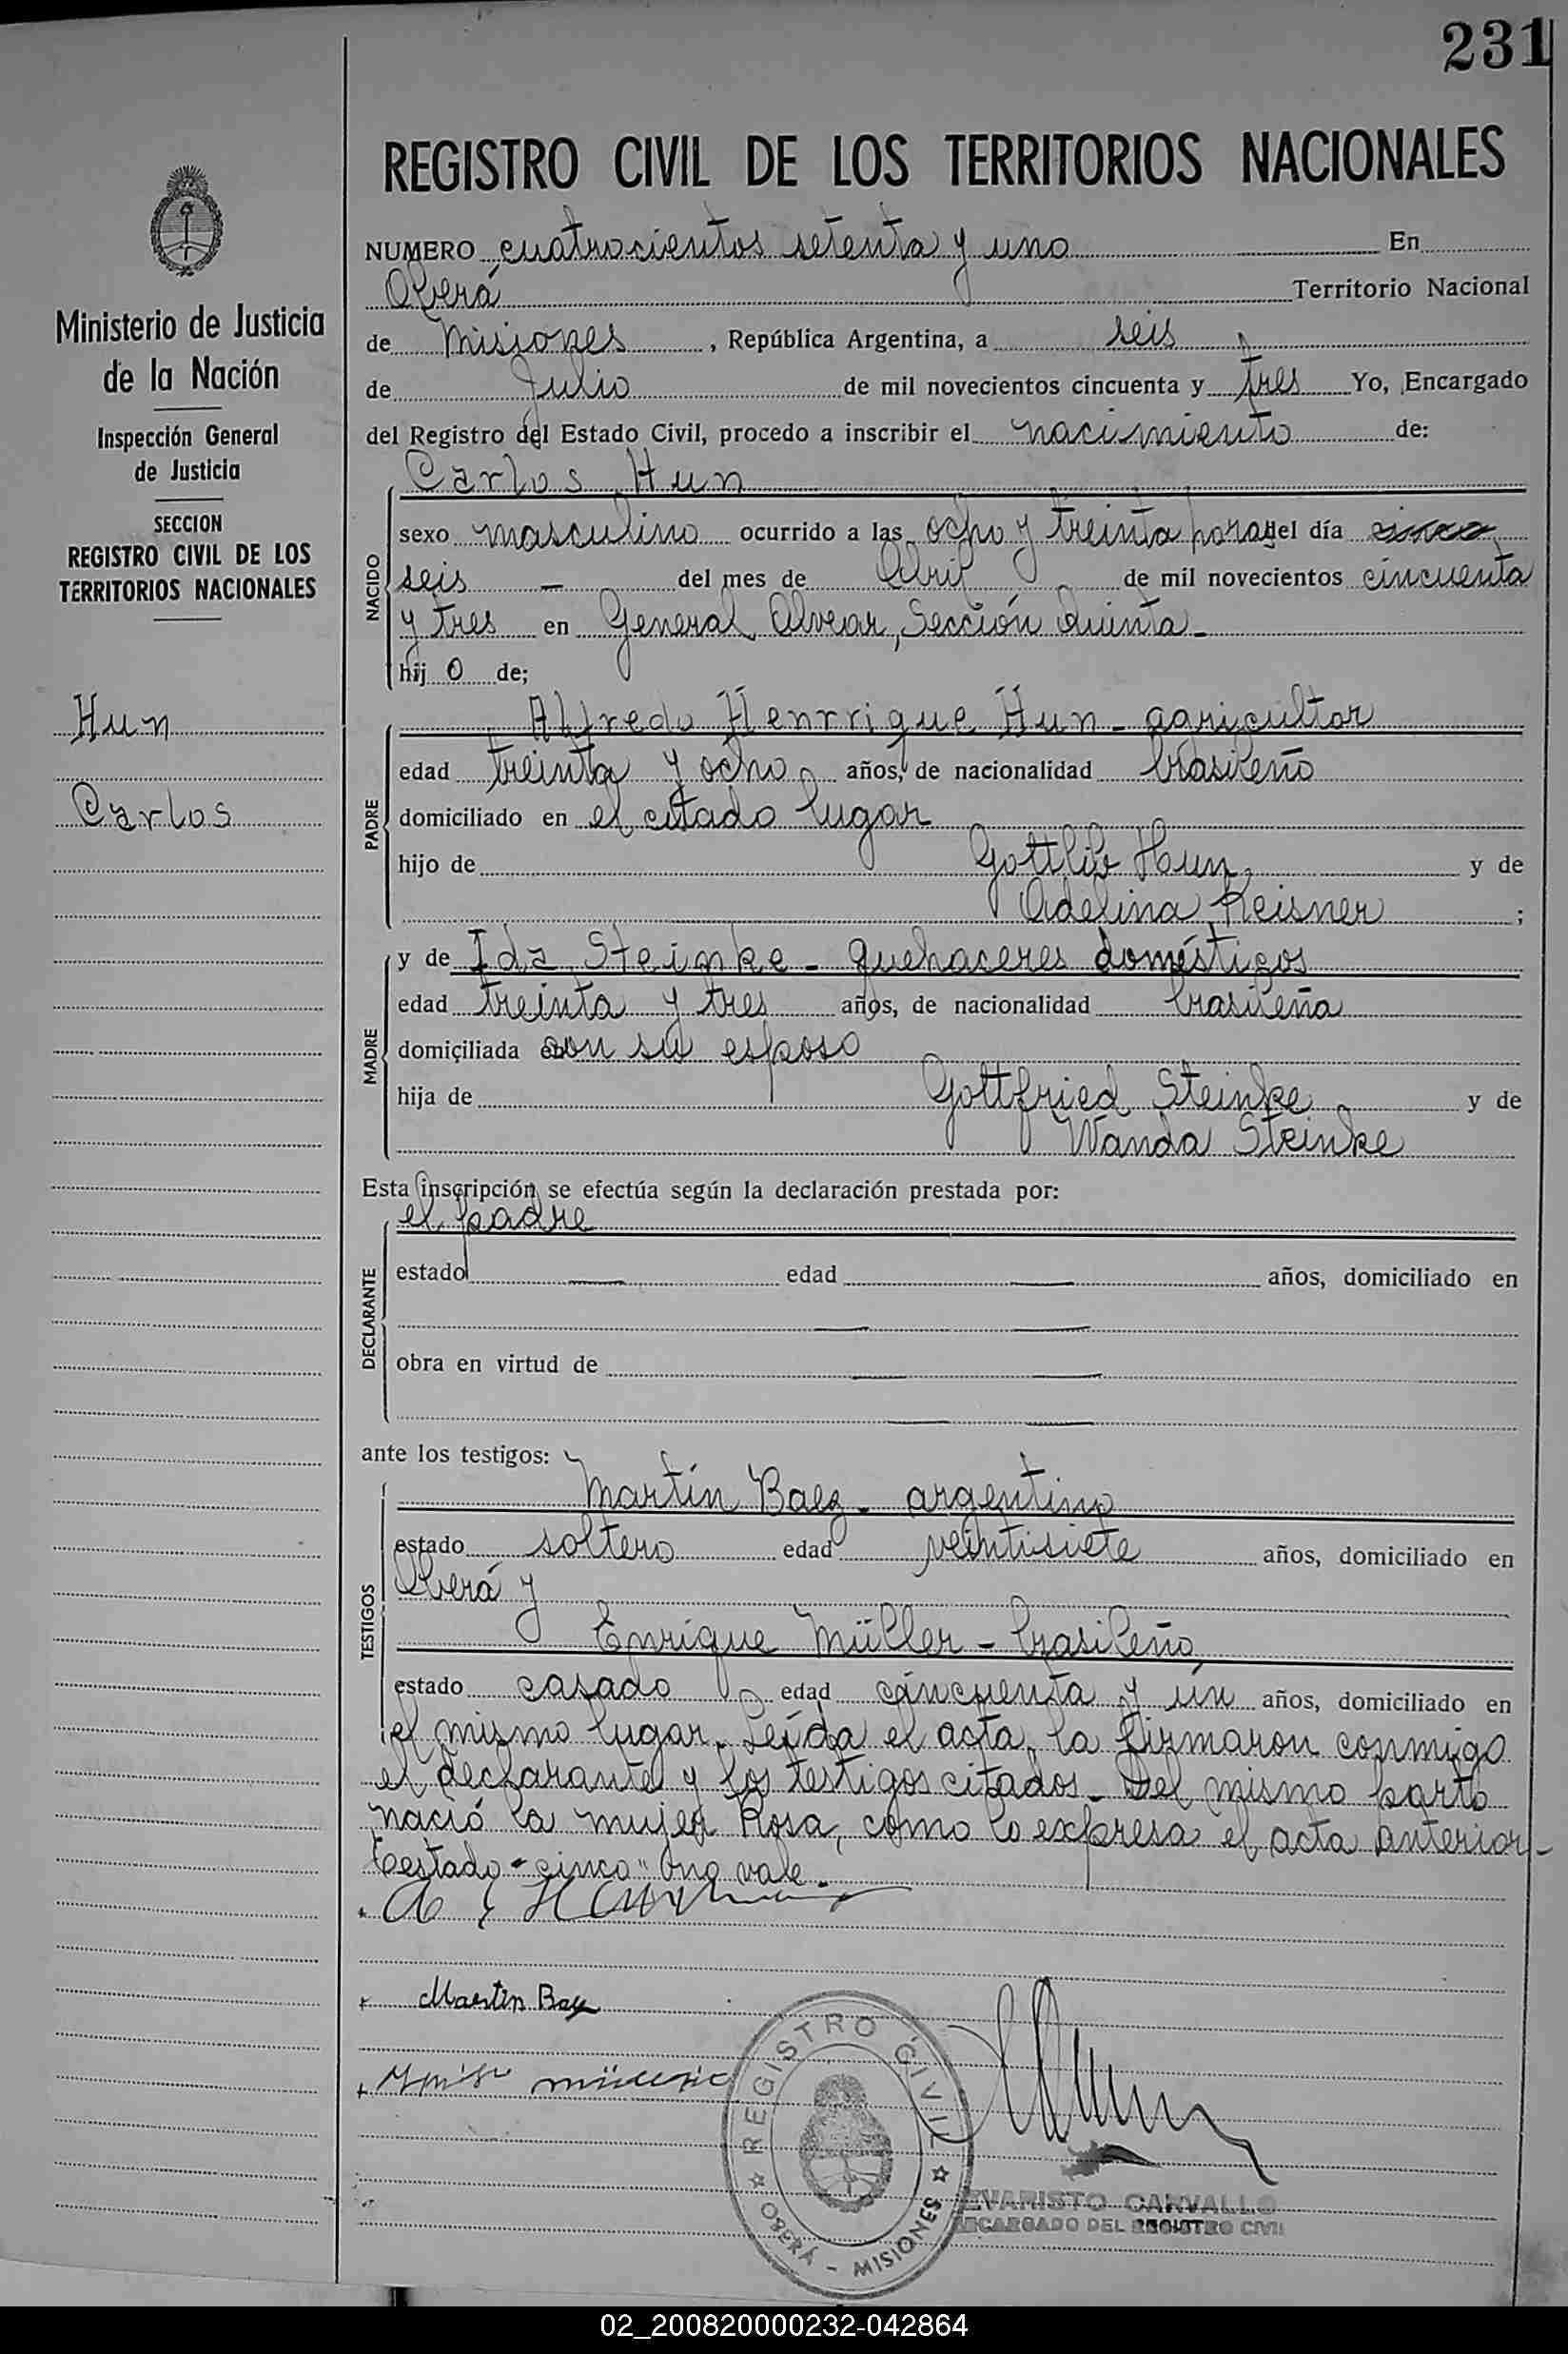 231
REGISTRO CIVIL DE LOS TERRITORIOS NACIONALES
Ministerio de Justicia
de la Nación
Inspección General
de Justicia
SECCION
REGISTRO CIVIL DE LOS
TERRITORIOS NACIONALES
Hun
Carlos
NUMERO cuatrocientos setenta y uno En
Oberá Territorio Nacional
de Misiones, República Argentina, a seis
de Julio de mil novecientos cincuenta y tres Yo, Encargado
del Registro del Estado Civil, procedo a inscribir el nacimiento de:
Carlos Hun
NACIDO
sexo masculino ocurrido a las ocho y treinta horas del día cinco
seis — del mes de Abril de mil novecientos cincuenta
y tres en General Alvear, Sección Quinta-
hij o de;
PADRE
Alfredo Henrrique Hun - agricultor
edad treinta y ocho años, de nacionalidad brasileño
domiciliado en el citado lugar
hijo de Gottlib Hun y de
Adelina Reisner ;
MADRE
y de Ida Steinke - quehaceres domésticos
edad treinta y tres años, de nacionalidad brasileña
domiciliada con su esposo
hija de Gottfried Steinke y de
Wanda Steinke
Esta inscripción se efectúa según la declaración prestada por:
el padre
DECLARANTE
estado — edad — años, domiciliado en
obra en virtud de
ante los testigos:
TESTIGOS
Martín Baez - argentino
estado soltero edad veintisiete años, domiciliado en
Oberá y
Enrique Müller - brasileño
estado casado edad cincuenta y un años, domiciliado en
el mismo lugar. Leída el acta, la firmaron conmigo
el declarante y los testigos citados. Del mismo parto
nació la mujer Rosa, como lo expresa el acta anterior-
Testado "cinco" no vale.
Martin Baez
REGISTRO CIVIL
OBERÁ - MISIONES
EVARISTO CARVALLO
ENCARGADO DEL REGISTRO CIVIL
02_200820000232-042864